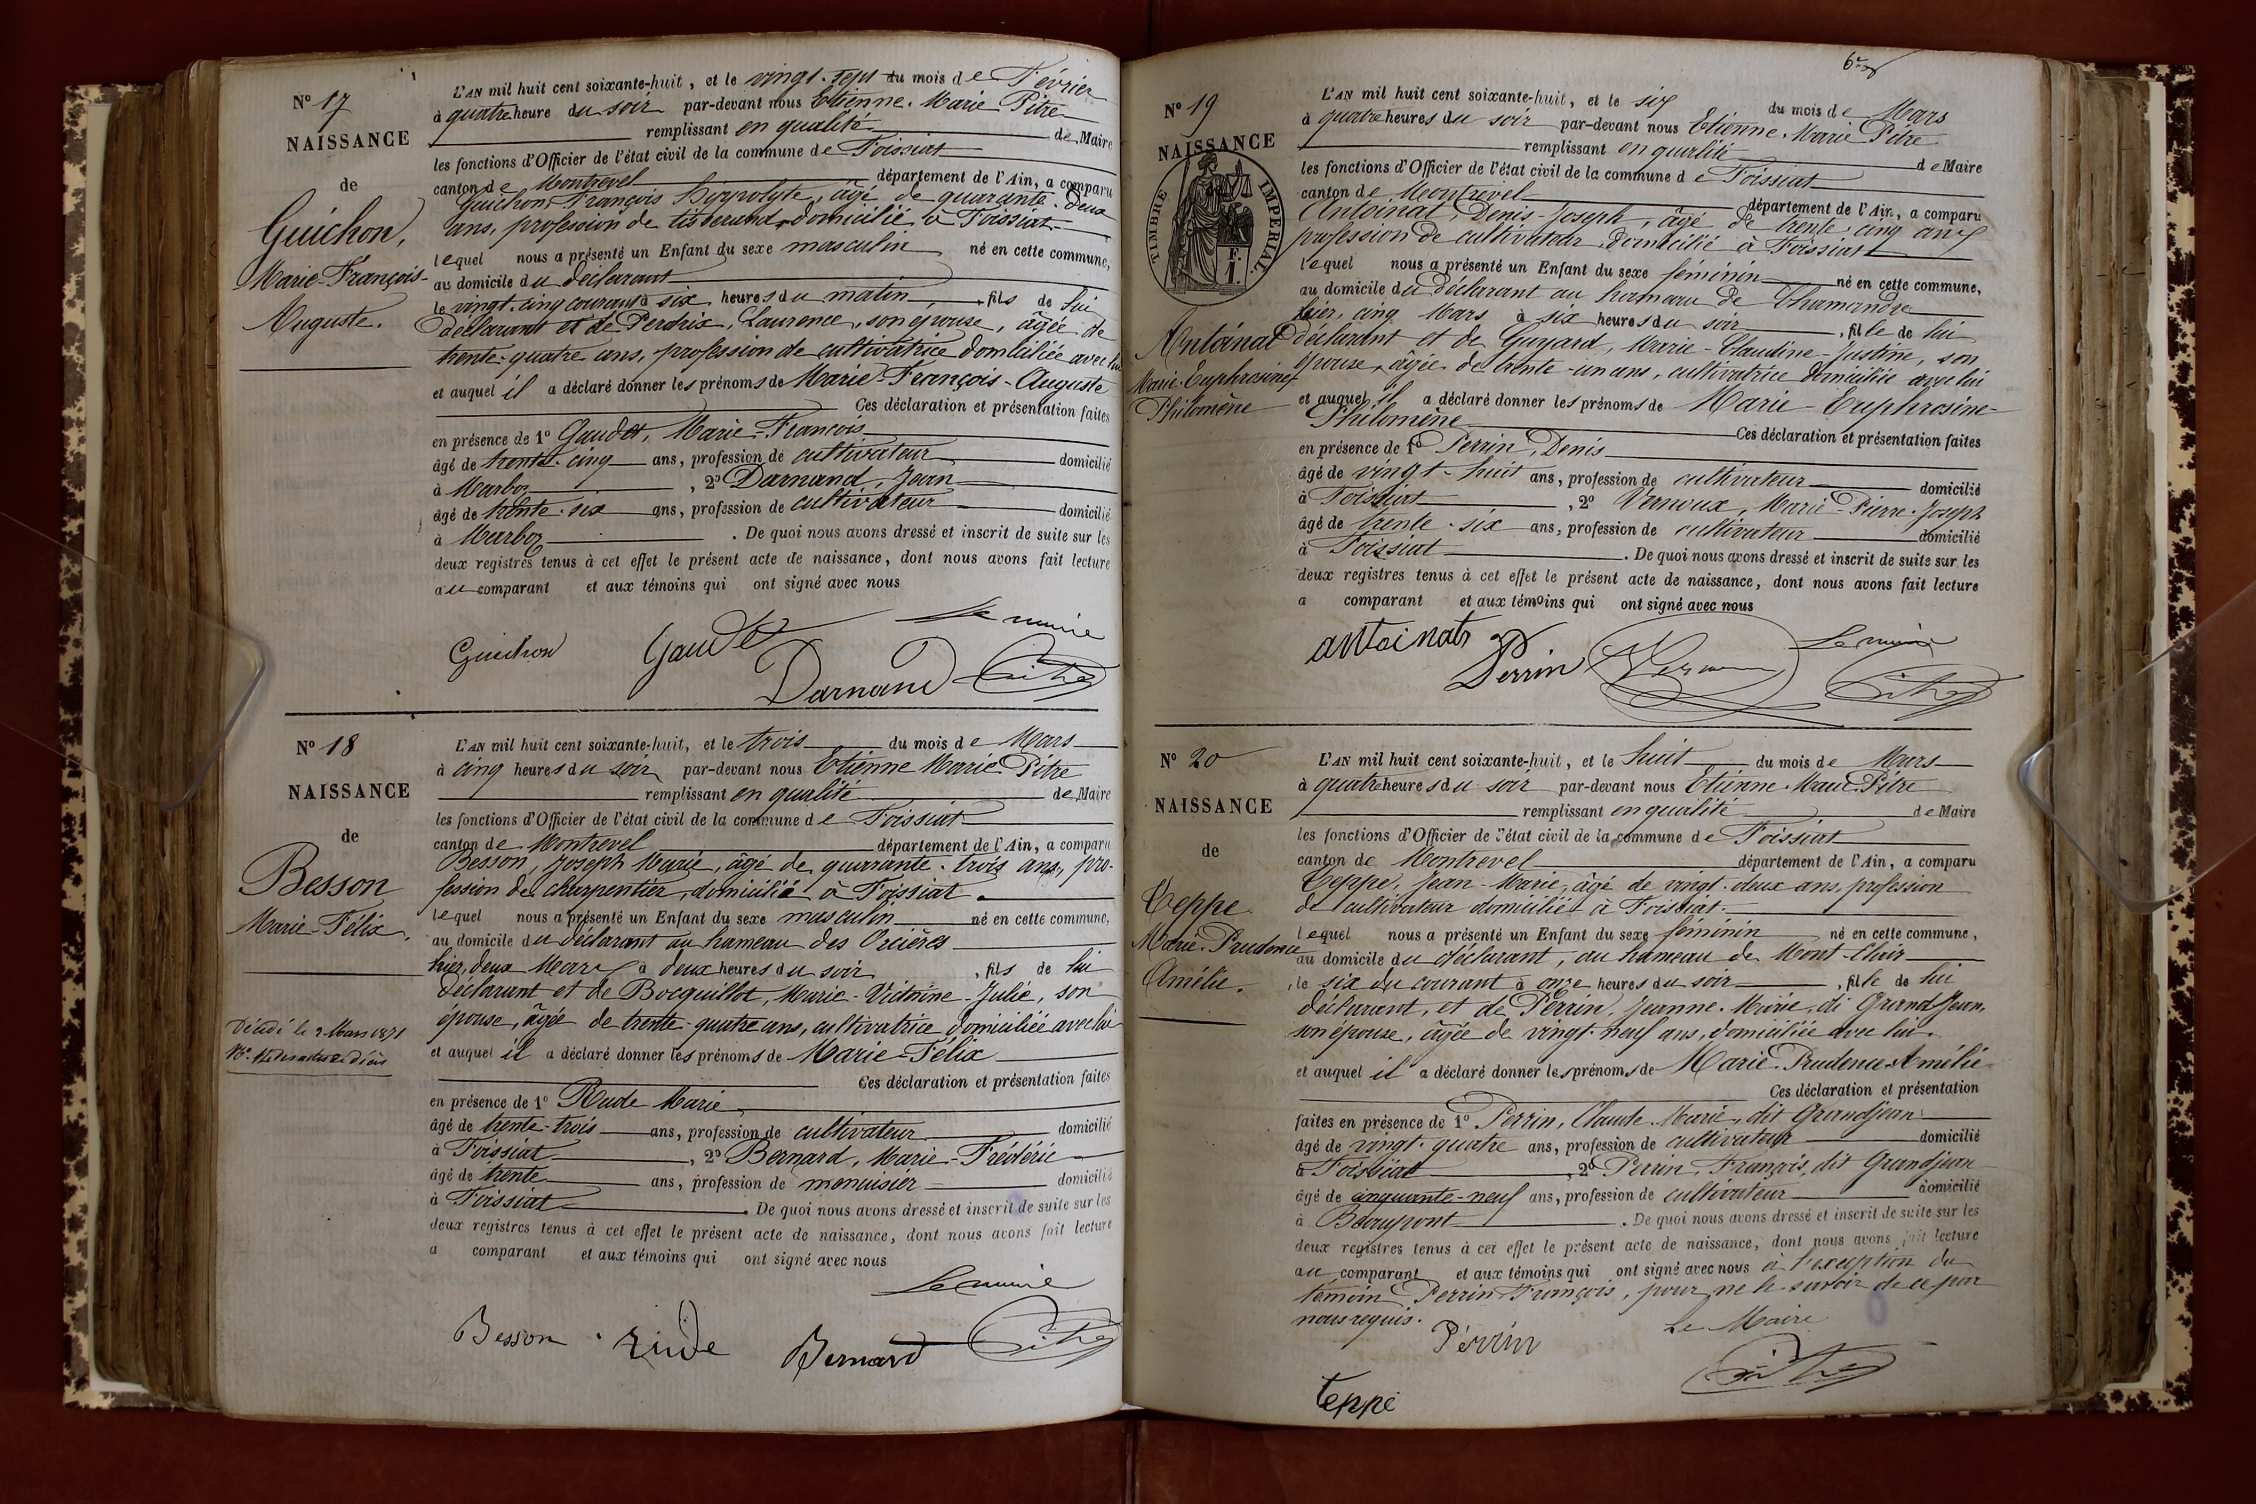 N° 17
NAISSANCE
de
Guichon,
Marie-François-
Auguste.
L'AN mil huit cent soixante-huit, et le vingt-sept du mois de Février
à quatre heure du soir par-devant nous Etienne-Marie Pitre
remplissant en qualité de Maire
les fonctions d'Officier de l'état civil de la commune de Foissiat
canton de Montrevel département de l'Ain, a comparu
Guichon, François Hyppolyte, âgé de quarante-deux
ans, profession de tisserand, domicilié à Foissiat
lequel nous a présenté un Enfant du sexe masculin né en cette commune,
au domicile du déclarant
le vingt-cinq courant à six heures du matin, fils de lui
déclarant et de Perdrix, Laurence, son épouse, âgée de
trente-quatre ans, profession de cultivatrice domiciliée avec lui
et auquel il a déclaré donner les prénoms de Marie-François-Auguste
Ces déclaration et présentation faites
en présence de 1° Gaudet, Marie-François
âgé de trente-cinq ans, profession de cultivateur domicilié
à Marboz, 2° Darnand, Jean
âgé de trente-six ans, profession de cultivateur domicilié
à Marboz. De quoi nous avons dressé et inscrit de suite sur les
deux registres tenus à cet effet le présent acte de naissance, dont nous avons fait lecture
au comparant et aux témoins qui ont signé avec nous
Le maire
Guichon Gaudet Darnand Pitre
N° 18
NAISSANCE
de
Besson
Marie-Félix.
Décédé le 2 Mars 1871
L'AN mil huit cent soixante-huit, et le trois du mois de Mars
à cinq heures du soir par-devant nous Etienne Marie Pitre
remplissant en qualité de Maire
les fonctions d'Officier de l'état civil de la commune de Foissiat
canton de Montrevel département de l'Ain, a comparu
Besson, Joseph Marie, âgé de quarante-trois ans, pro-
fession de charpentier, domicilié à Foissiat
lequel nous a présenté un Enfant du sexe masculin né en cette commune,
au domicile du déclarant au hameau des Orcières
hier, deux Mars à deux heures du soir, fils de lui
déclarant et de Bocquillot, Marie-Victoine-Julie, son
épouse, âgée de trente-quatre ans, cultivatrice domiciliée avec lui
et auquel il a déclaré donner les prénoms de Marie-Félix
Ces déclaration et présentation faites
en présence de 1° Rude Marie
âgé de trente-trois ans, profession de cultivateur domicilié
à Foissiat, 2° Bernard, Marie-Frédéric
âgé de trente ans, profession de menuisier domicilié
à Foissiat. De quoi nous avons dressé et inscrit de suite sur les
deux registres tenus à cet effet le présent acte de naissance, dont nous avons fait lecture
a comparant et aux témoins qui ont signé avec nous
Le maire
Besson rude Bernard Pitre
N° 19
NAISSANCE
TIMBRE IMPERIAL
F.
1.
Antoinat
Marie-Euphrosine
Philomène
L'AN mil huit cent soixante-huit, et le six du mois de Mars
à quatre heures du soir par-devant nous Etienne-Marie Pitre
remplissant en qualité de Maire
les fonctions d'Officier de l'état civil de la commune de Foissiat
canton de Montrevel département de l'Ain, a comparu
Antoinat, Denis-Joseph, âgé de trente-cinq ans
profession de cultivateur domicilié à Foissiat
lequel nous a présenté un Enfant du sexe féminin né en cette commune,
au domicile du déclarant au hameau de Chamandre
hier, cinq Mars à six heures du soir, fille de lui
déclarant et de Guyard, Marie-Claudine-Justine, son
épouse, âgée de trente-un ans, cultivatrice domiciliée avec lui
et auquel il a déclaré donner les prénoms de Marie-Euphrosine-
Philomène
Ces déclaration et présentation faites
en présence de 1° Perrin, Denis
âgé de vingt-huit ans, profession de cultivateur domicilié
à Foissiat, 2° Vernoux, Marie-Pierre-Joseph
âgé de trente-six ans, profession de cultivateur domicilié
à Foissiat. De quoi nous avons dressé et inscrit de suite sur les
deux registres tenus à cet effet le présent acte de naissance, dont nous avons fait lecture
a comparant et aux témoins qui ont signé avec nous
antoinat Perrin Le maire
Pitre
N° 20
NAISSANCE
de
Teppe
Marie-Prudence
Amélie.
L'AN mil huit cent soixante-huit, et le huit du mois de Mars
à quatre heures du soir par-devant nous Etienne-Marie Pitre
remplissant en qualité de Maire
les fonctions d'Officier de l'état civil de la commune de Foissiat
canton de Montrevel département de l'Ain, a comparu
Teppe, Jean-Marie, âgé de vingt-deux ans, profession
de cultivateur domicilié à Foissiat
lequel nous a présenté un Enfant du sexe féminin né en cette commune,
au domicile du déclarant, au hameau de Mont-Clair
, le six du courant à onze heures du soir, fille de lui
déclarant, et de Perrin, Jeanne-Marie, di Grand Jean,
son épouse, âgée de vingt-neuf ans, domiciliée avec lui.
et auquel il a déclaré donner les prénoms de Marie-Prudence Amélie
Ces déclaration et présentation
faites en présence de 1° Perrin, Claude-Marie, dit Grandjean
âgé de vingt-quatre ans, profession de cultivateur domicilié
à Foissiat, 2° Perrin, François, dit Grandjean
âgé de cinquante-neuf ans, profession de cultivateur domicilié
à Beaupont. De quoi nous avons dressé et inscrit de suite sur les
deux registres tenus à cet effet le présent acte de naissance, dont nous avons fait lecture
au comparant et aux témoins qui ont signé avec nous à l'exception du
témoin Perrin François, pour ne le savoir de ce par
nous requis.
Perrin Le Maire
Pitre
teppe